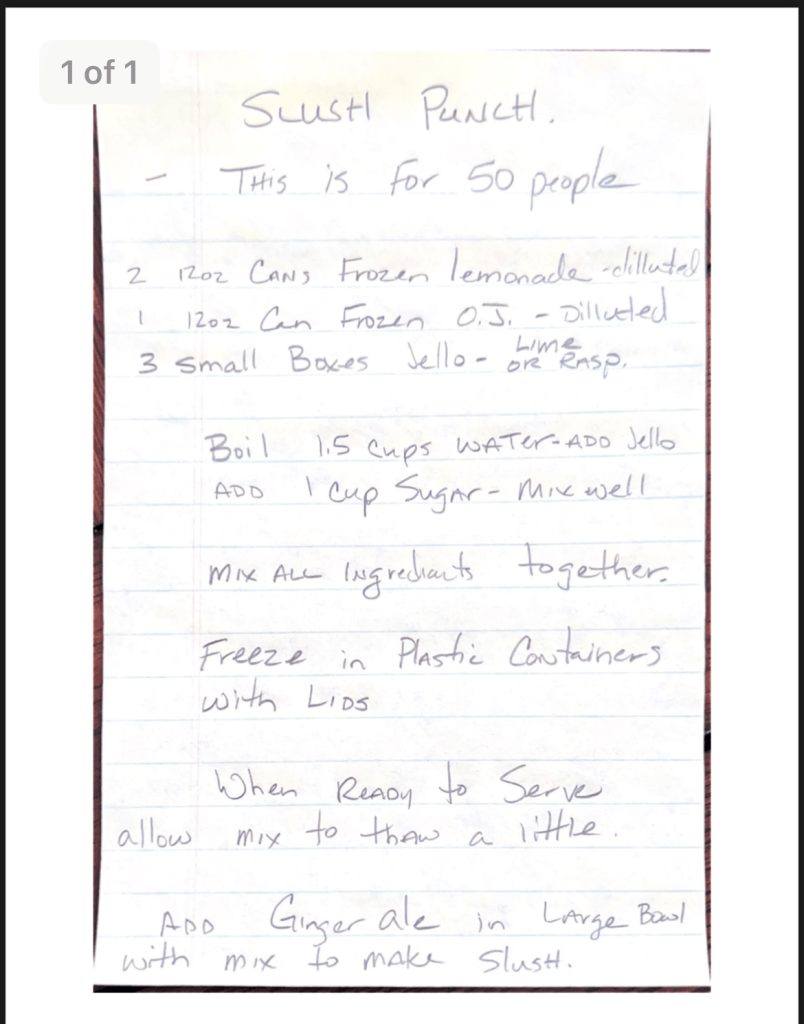 1 of 1
Slush Punch.
- This is for 50 people
2 12oz Cans Frozen lemonade - dilluted
1 12oz Can Frozen O.J. - Dilluted
3 small Boxes Jello - Lime or Rasp.
Boil 1.5 cups water - ADD Jello
ADD 1 cup Sugar - Mix well
Mix All Ingrediants together.
Freeze in Plastic Containers
with Lids
When Ready to Serve
allow mix to thaw a little.
ADD Ginger ale in Large Bowl
with mix to make Slush.